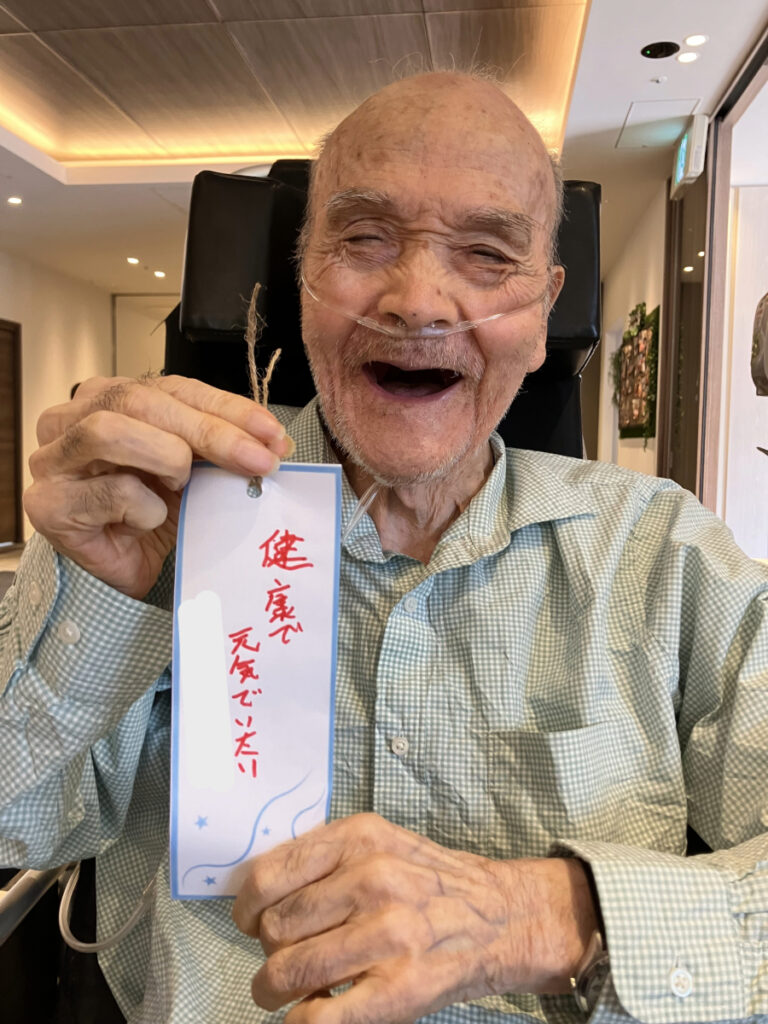 健康で
元気でいたい